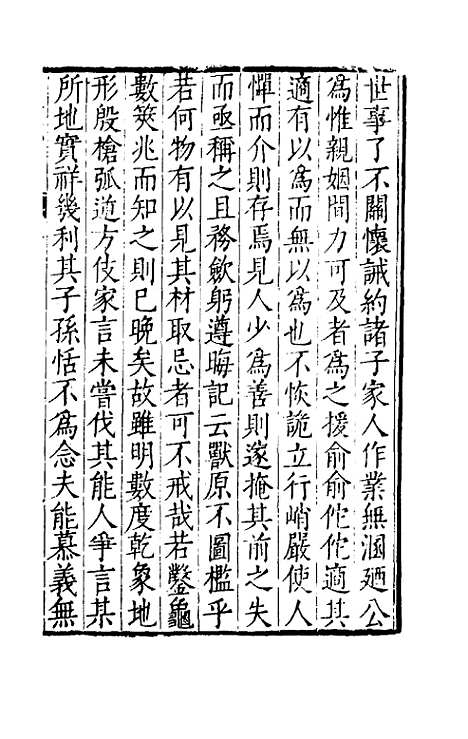 世事了不關懷誡約諸子家人作業無溷廼公
爲惟親姻間力可及者爲之援俞俞佗佗適其
適有以爲而無以爲也不恢詭立行峭嚴使人
憚而介則存焉見人少爲善則遂掩其前之失
而亟稱之且務歛躬遵晦記云獸原不圖檻乎
若何物有以見其材取忌者可不戒哉若鑿龜
數筴兆而知之則已晚矣故雖明數度乾象地
形殷槍弧遁方伎家言未嘗伐其能人爭言某
所地實祥幾利其子孫恬不爲念夫能慕義無